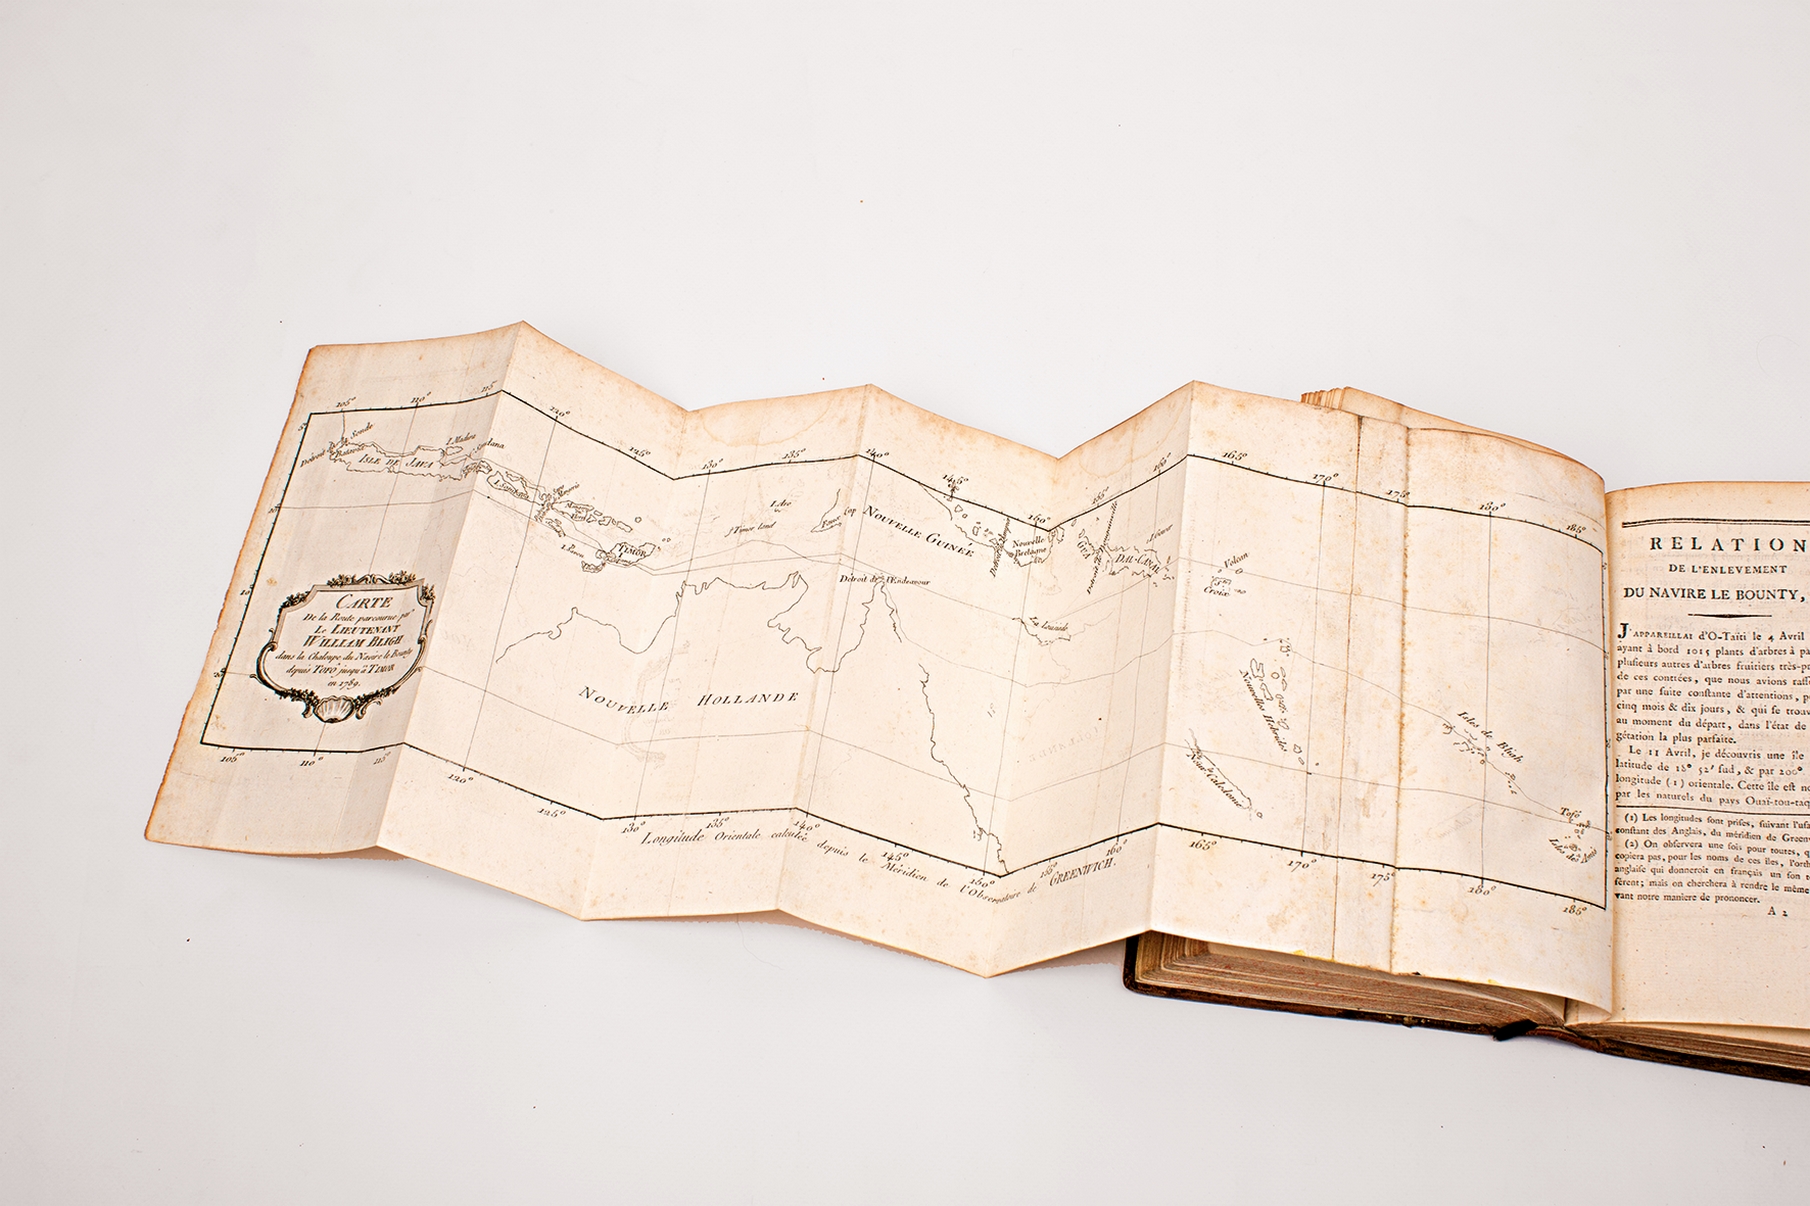 CARTE
De la Route parcourue par
Le LIEUTENANT
WILLIAM BLIGH
dans la Chaloupe du Navire le Bounty
depuis TOFÔ jusqu'à TIMOR
en 1789.
105° 110° 115° 120° 125° 130° 135° 140° 145° 150° 155° 160° 165° 170° 175° 180° 185°
Détroit de la Sonde
Batavia
ISLE DE JAVA
I. Madura
TIMOR
Timor land
I. Arv
NOUVELLE GUINÉE
Nouvelle Bretagne
Détroit de l'Endeavour
La Louisiade
Volcan
Croix
NOUVELLE HOLLANDE
Nouvelles Hebrides
Nouv. Caledonie
Isles de Bligh
Tofô
Isles des Amis
105° 110° 115° 120° 125° 130° 135° 140° 145° 150° 155° 160° 165° 170° 175° 180° 185°
Longitude Orientale calculée depuis le Méridien de l'Observatoire de GREENWICH.
RELATION
DE L'ENLEVEMENT
DU NAVIRE LE BOUNTY,
J'APPAREILLAI d'O-Taïti le 4 Avril
ayant à bord 1015 plants d'arbres à
plusieurs autres d'arbres fruitiers
de ces contrées, que nous avions
par une suite constante d'attentions,
cinq mois & dix jours, & qui se
au moment du départ, dans l'état de
gétation la plus parfaite.
Le 11 Avril, je découvris une île
latitude de 18° 52' sud, & par 200°
longitude (1) orientale. Cette île est
par les naturels du pays
(1) Les longitudes sont prises, suivant
constant des Anglais, du méridien de
(2) On observera une fois pour toutes,
copiera pas, pour les noms de ces îles,
anglaise qui donneroit en français un son
férent; mais on cherchera à rendre le
vant notre maniere de prononcer.
A 2